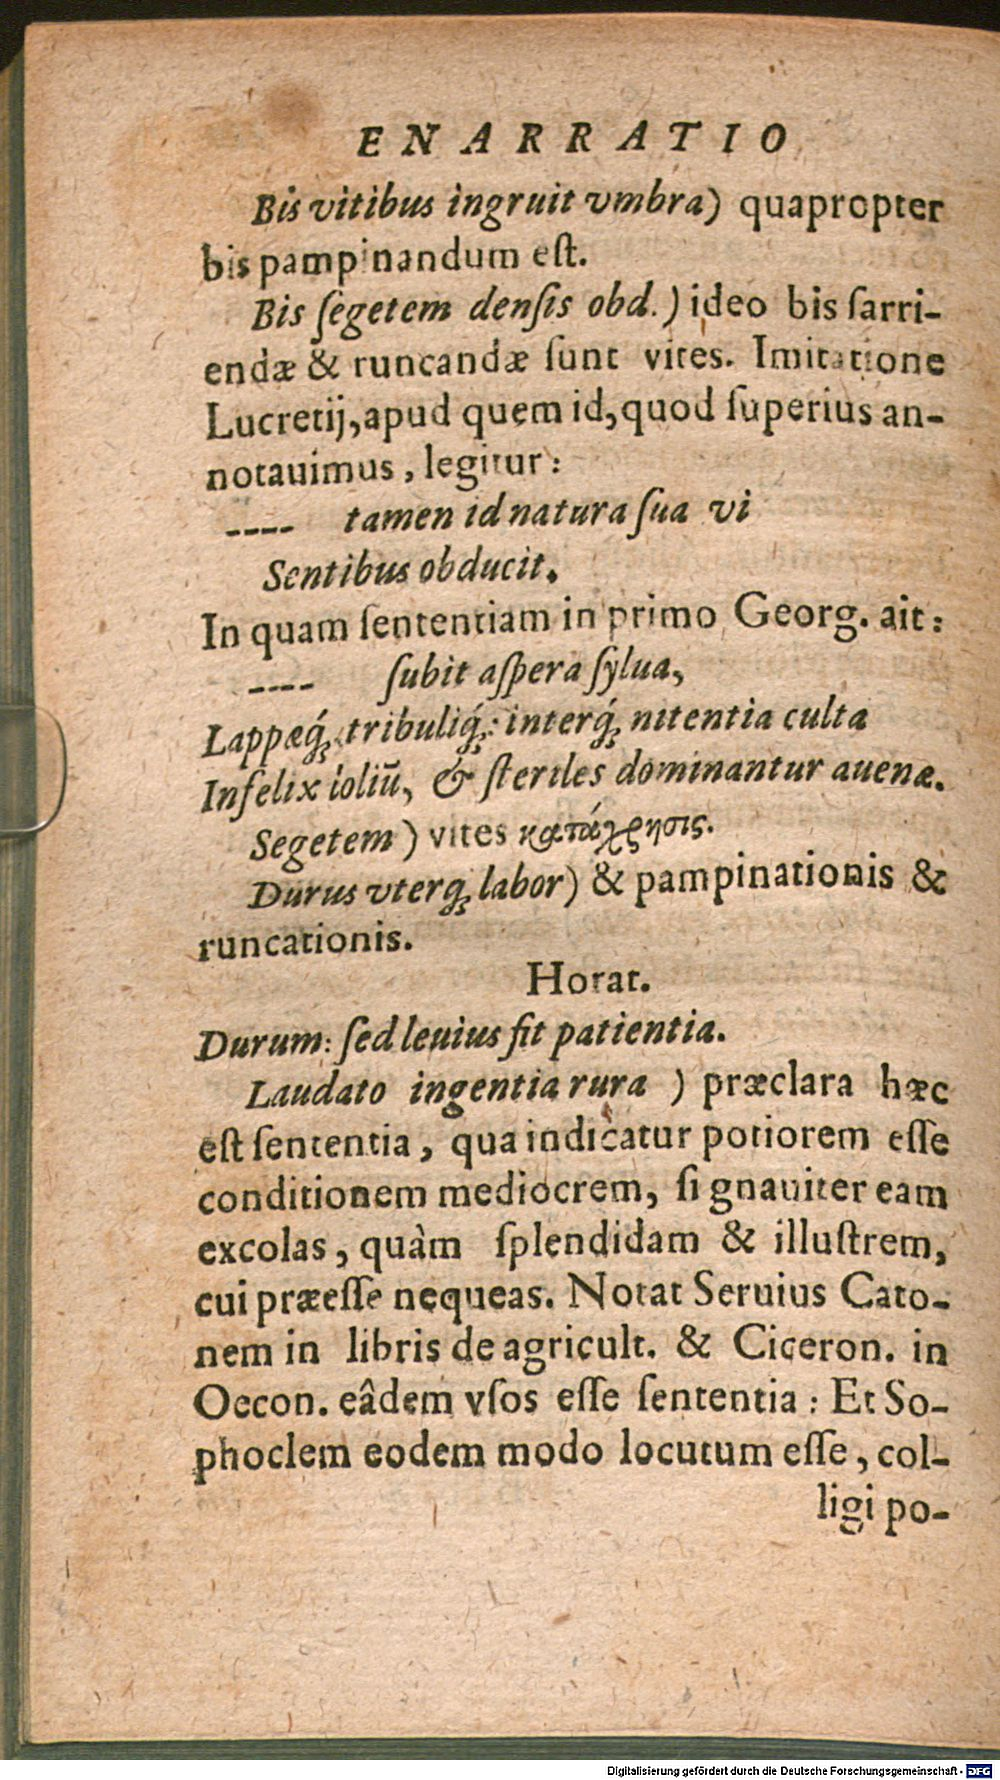 ENARRATIO
Bis vitibus ingruit vmbra) quapropter
bis pampinandum eſt.
Bis ſegetem denſis obd.) ideo bis ſarri-
endæ & runcandæ ſunt vites. Imitatione
Lucretij, apud quem id, quod ſuperius an-
notauimus, legitur:
---- tamen id natura ſua vi
Sentibus obducit.
In quam ſententiam in primo Georg. ait:
---- ſubit aſpera ſylua,
Lappæq́ꝫ tribuliq́ꝫ: interq́ꝫ nitentia culta
Infelix loliũ, & ſteriles dominantur auenæ.
Segetem) vites κατάχρησις.
Durus vterqꝫ labor) & pampinationis &
runcationis.
Horat.
Durum: ſed leuius fit patientia.
Laudato ingentia rura) præclara hæc
eſt ſententia, qua indicatur potiorem eſſe
conditionem mediocrem, ſi gnauiter eam
excolas, quàm ſplendidam & illuſtrem,
cui præeſſe nequeas. Notat Seruius Cato-
nem in libris de agricult. & Ciceron. in
Oecon. eâdem vſos eſſe ſententia: Et So-
phoclem eodem modo locutum eſſe, col-
ligi po-
Digitalisierung gefördert durch die Deutsche Forschungsgemeinschaft - DFG